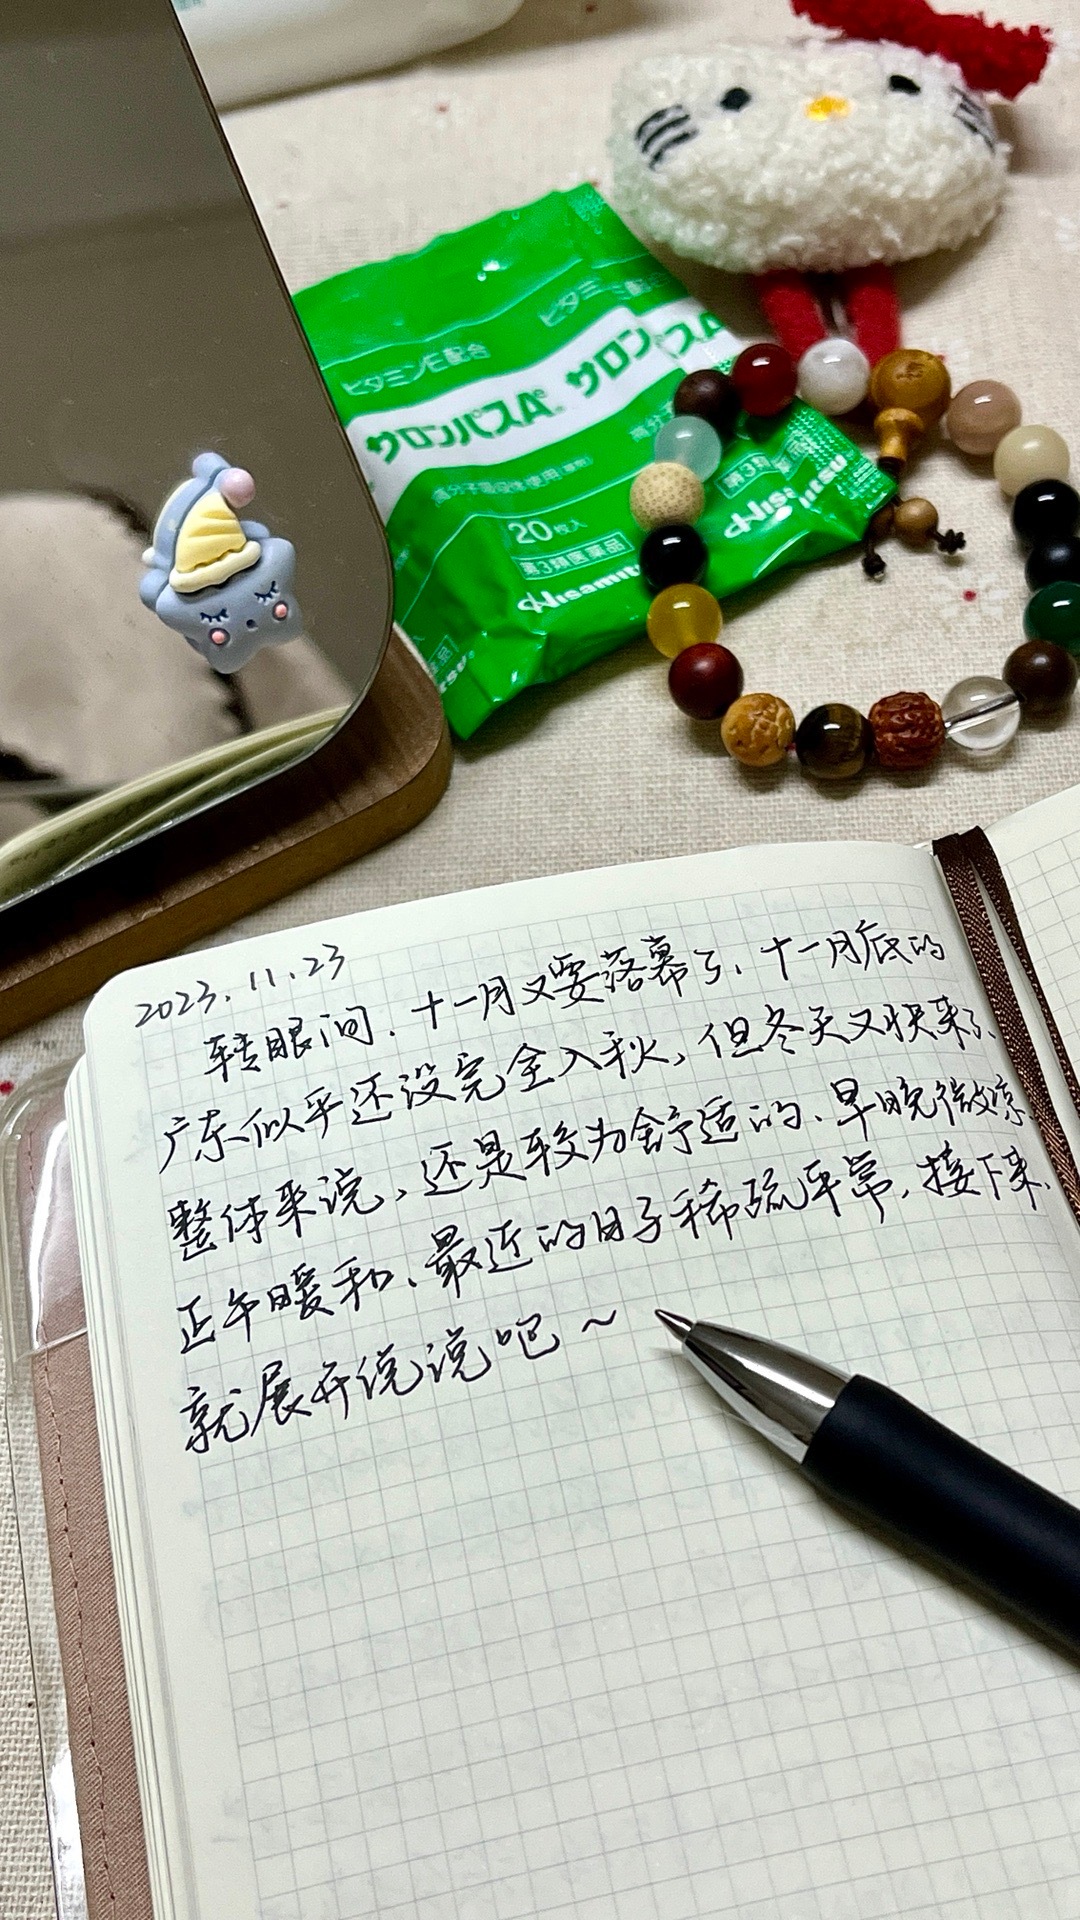 ビタミンE配合
ビタミンE配合
サロンパスAe
サロンパスA
20枚入
第3類医薬品
第3類
Hisamitsu
2023.11.23
转眼间、十一月又要落幕了、十一月底的
广东似乎还没完全入秋,但冬天又快来了、
整体来说,还是较为舒适的、早晚微凉、
正午暖和、最近的日子稀疏平常,接下来、
就展开说说吧~